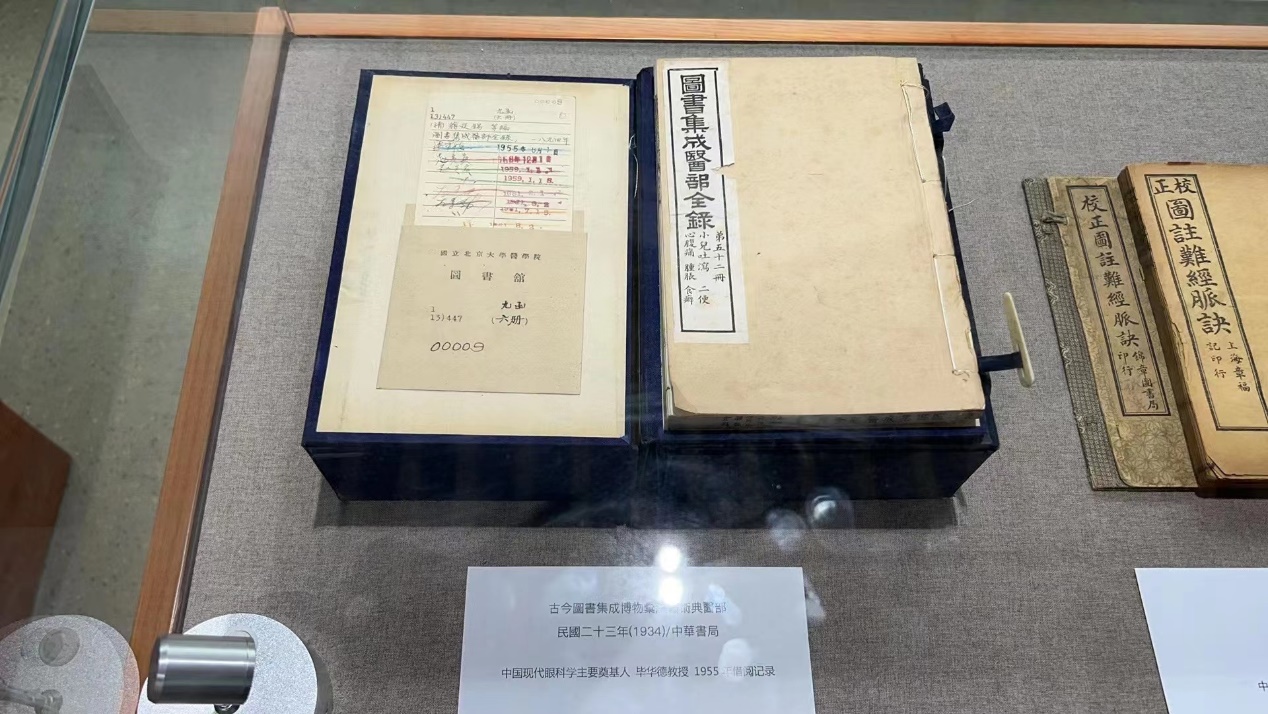 1
13)447
九函
(六册)
1955年
1959.1.1
國立北京大學醫學院
圖書館
1
13)447
九函
(六册)
00009
圖書集成醫部全錄
第五十二冊
小兒吐瀉 二便
心腹痛 腫脹 食癖
校正圖註難經脈訣
錦章圖書局
印行
校正
圖註難經脈訣
上海章福
記印行
古今圖書集成博物彙
術典醫部
民國二十三年(1934)/中華書局
中国现代眼科学主要奠基人 毕华德教授 1955年借阅记录
中